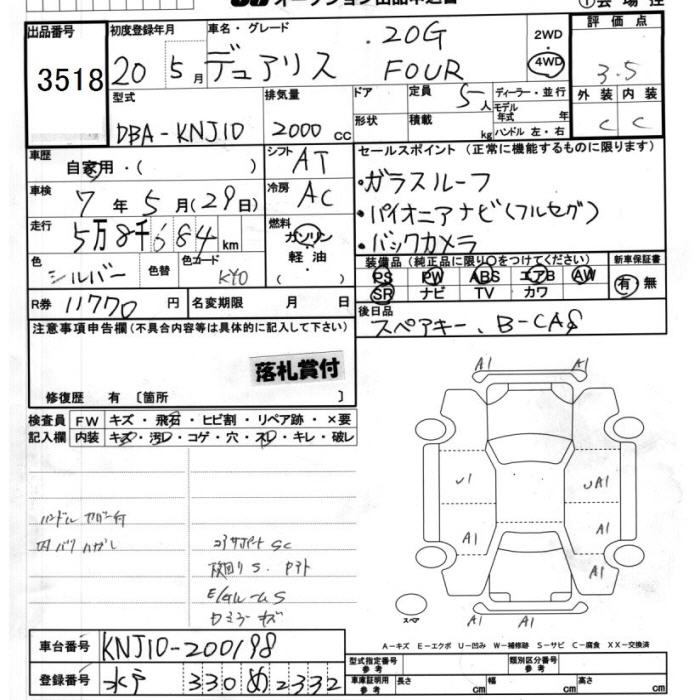 オークション出品申込書
①会場控
出品番号
3518
初度登録年月
20 5月
車名・グレード
デュアリス
20G
FOUR
2WD
・
4WD
評価点
3.5
外装 内装
C C
型式
DBA-KNJ10
排気量
2000 cc
ドア
形状
定員
5人
積載
kg
ディーラー・並行
モデル年式 年
ハンドル 左・右
車歴
自家用・( )
シフト
AT
車検
7年5月(29日)
冷房
AC
走行
5万8千684km
燃料
ガソリン
・
軽油
・
( )
色
シルバー
色替
色コード
KY0
R券 11770円
名変期限 月 日
セールスポイント (正常に機能するものに限ります)
・ガラスルーフ
・パイオニアナビ(フルセグ)
・バックカメラ
装備品(純正品に限り○をつけてください)
PS PW ABS エアB AW
SR ナビ TV カワ
新車保証書
有・無
後日品
スペアキー、B-CAS
注意事項申告欄(不具合内容等は具体的に記入して下さい)
落札賞付
修復歴 有 [箇所 ]
検査員記入欄
FW キズ・飛石・ヒビ割・リペア跡・×要
内装 キズ・汚レ・コゲ・穴・スレ・キレ・破レ
ハンドルカバー付
内バリハガレ
コアサポートSC
下回りS.
ドアミラーキズ
A1 A1
U1 UA1
A1
A1 A1
A1 A1
スペア
A-キズ E-エクボ U-凹み W-補修跡 S-サビ C-腐食 XX-交換済
車台番号
KNJ10-200198
登録番号
水戸 330 め 2332
型式指定番号
参考
類別区分番号
参考
車庫証明用
参考
長さ cm
幅 cm
高さ cm